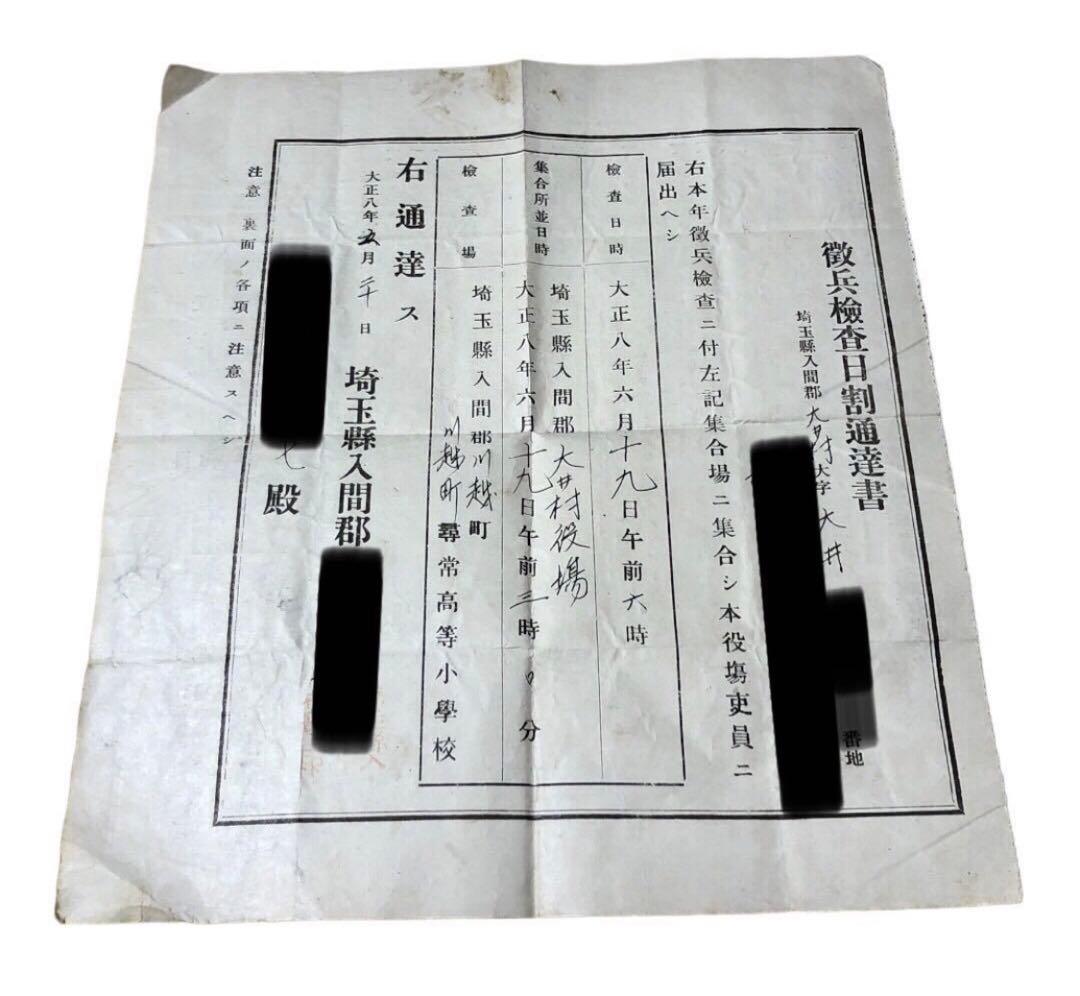 徵兵檢査日割通達書
埼玉縣入間郡大井村大字大井
番地
右本年徵兵檢査ニ付左記集合場ニ集合シ本役塲吏員ニ
届出ヘシ
檢査日時
大正八年六月十九日午前六時
集合所並日時
埼玉縣入間郡大井村役場
大正八年六月十九日午前三時〇分
檢査場
埼玉縣入間郡川越町
川越町尋常高等小學校
右通達ス
大正八年五月二十日
埼玉縣入間郡
七殿
注意 裏面ノ各項ニ注意スヘシ